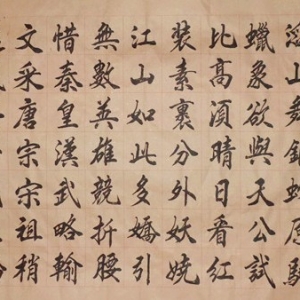 滔山舞銀蛇原馳
蠟象欲與天公試
比高湏晴日看紅
裝素裹分外妖嬈
江山如此多嬌引
無數英雄競折腰
惜秦皇漢武略輸
文采唐宗宋祖稍